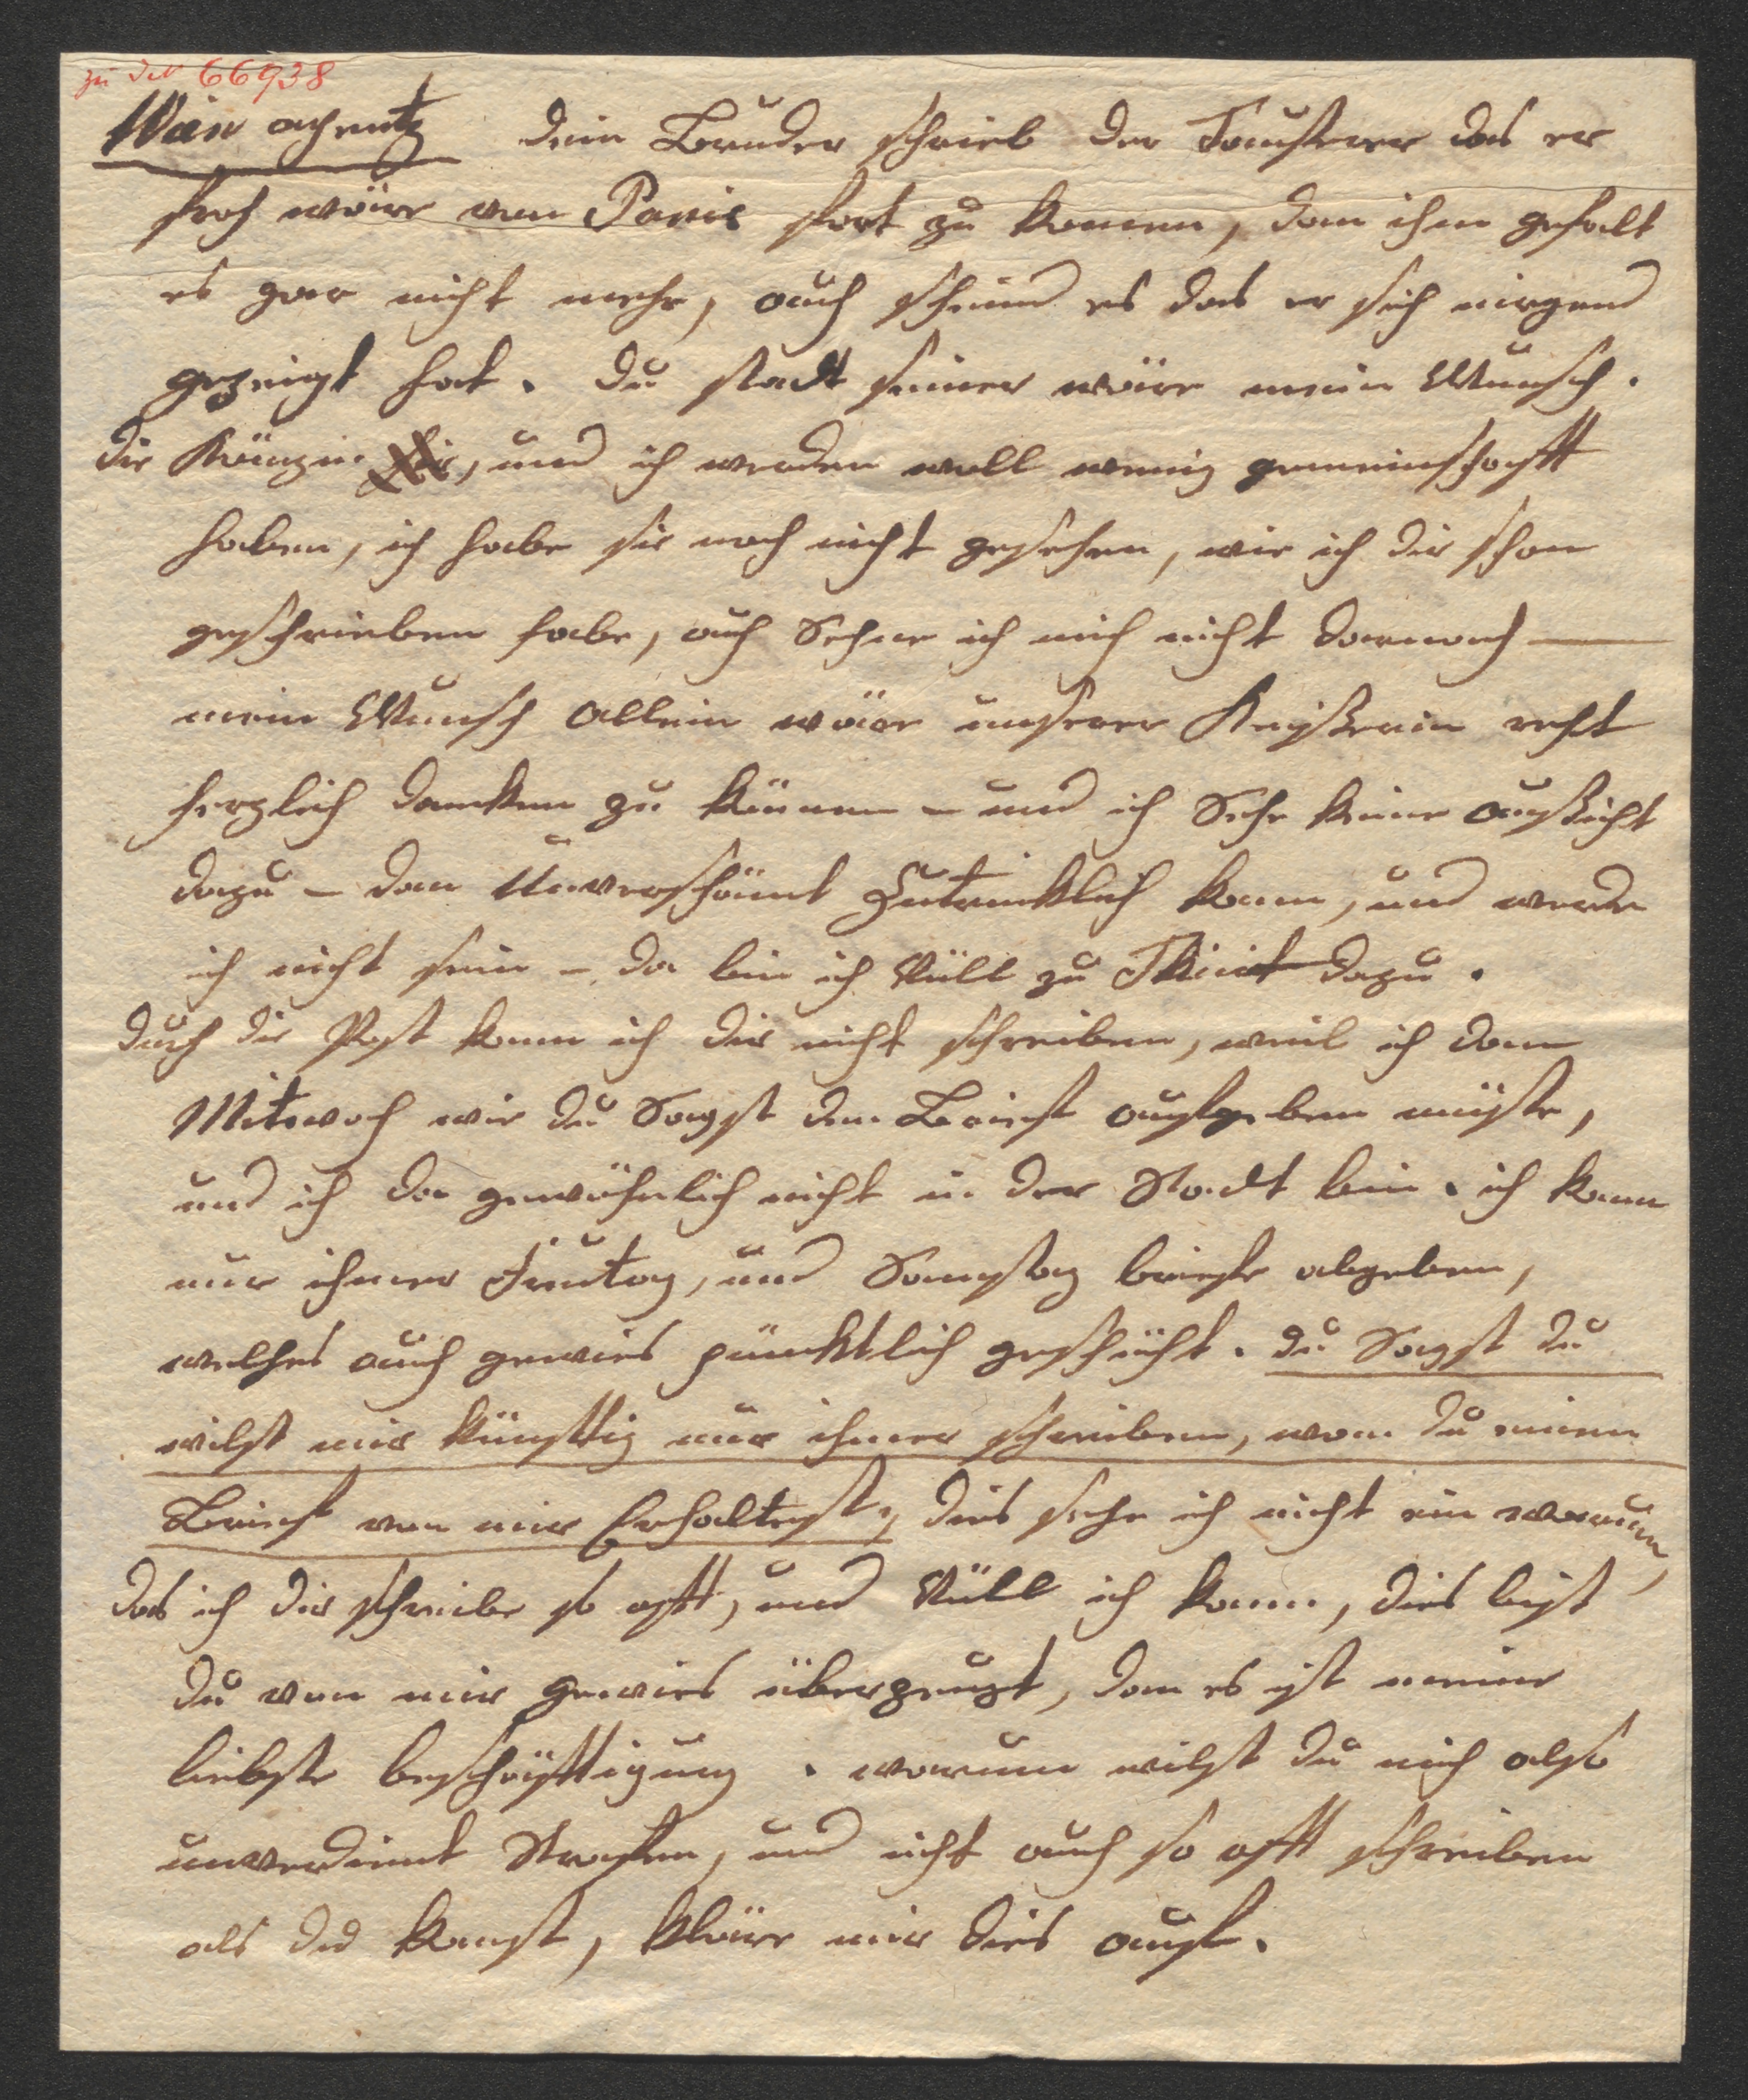 zu 66938
dein Bruder schrieb der das er
froh wäre von Paris fort zu komen, dan ihm gefalt
es gar nicht mehr, auch scheind es das er sich nirgend
gezeigt hat. du stadt seiner wäre mein Wunsch.
die und ich werden woll wenig gemeinschafft
haben, ich habe sie noch nicht gesehen, wie ich dir schon
geschrieben habe, auch Sehne ich mich nicht darnach —
mein Wunsch allein wäre unserer Keyßerin recht
herzlich dancken zu können – und ich Sehe keine außsicht
dazu – dan Unverschämt Zutrinklich kann, und werde
ich nicht sein – da bin ich Vüll zu dazu.
durch die Post kann ich dir nicht schreiben, weil ich dann
Mitwoch wie du Sagst den Brief aufgeben müste,
und ich da gewöhnlich nicht in der Stadt bin. ich kann
nur ihmer Freutag, und Samstag briefe abgeben,
welches auch gewies püncktlich geschücht. du Sagst du
wilst mir künfftig nur ihmer schreiben, wan du einen
Brief von mir Erhaltest, dies sehe ich nicht ein warum,
das ich dir schreibe so offt, und Vüll ich kann, dies bist
du von mir gewies überzeugt, dan es ist meine
liebste beschäfftigung. warum wilst du mich also
unverdient Strafen, und nicht auch so offt schreiben
als du kanst, kläre mir dies auf.